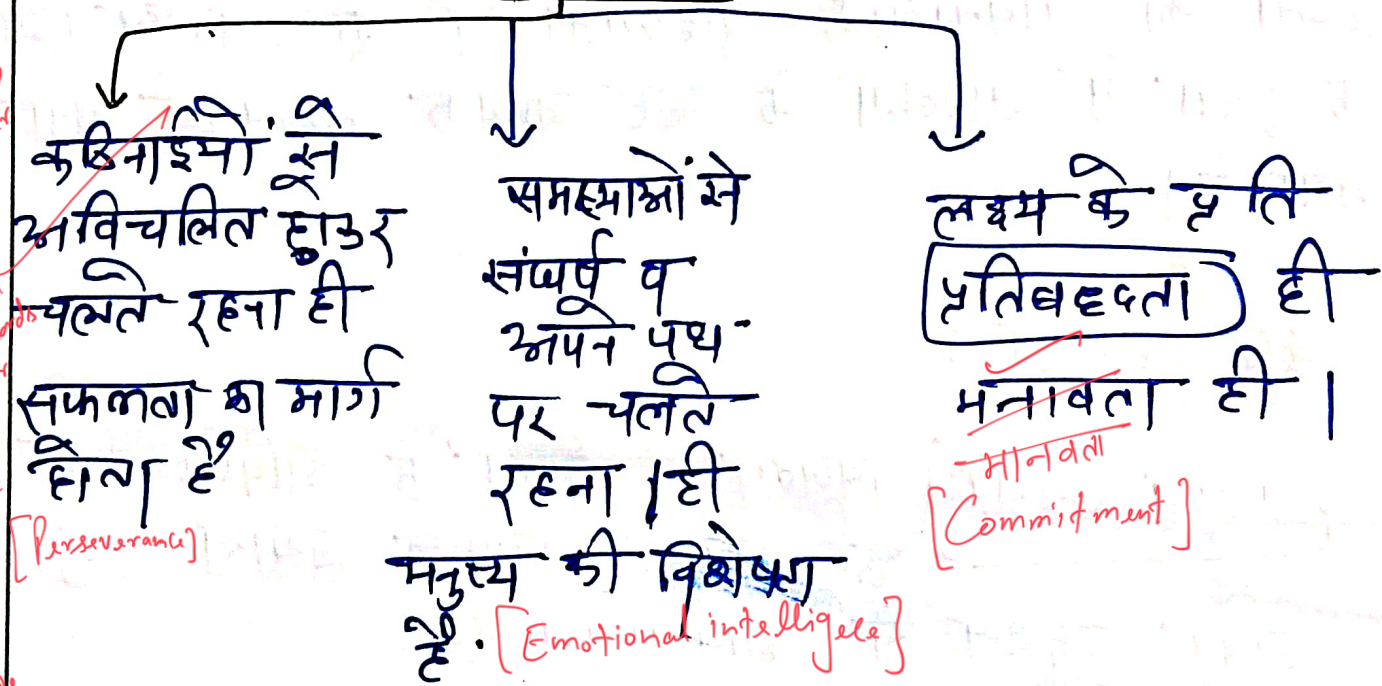 कठिनाईयों से
अविचलित होकर
चलते रहना ही
सफलता का मार्ग
होता है
[Perseverance]
समस्याओं से
संघर्ष व
अपने पथ
पर चलते
रहना ही
मनुष्य की विशेषता
है.
[Emotional intelligece]
लक्ष्य के प्रति
प्रतिबद्दता ही
मनावता ही।
मानवता
[Commitment]